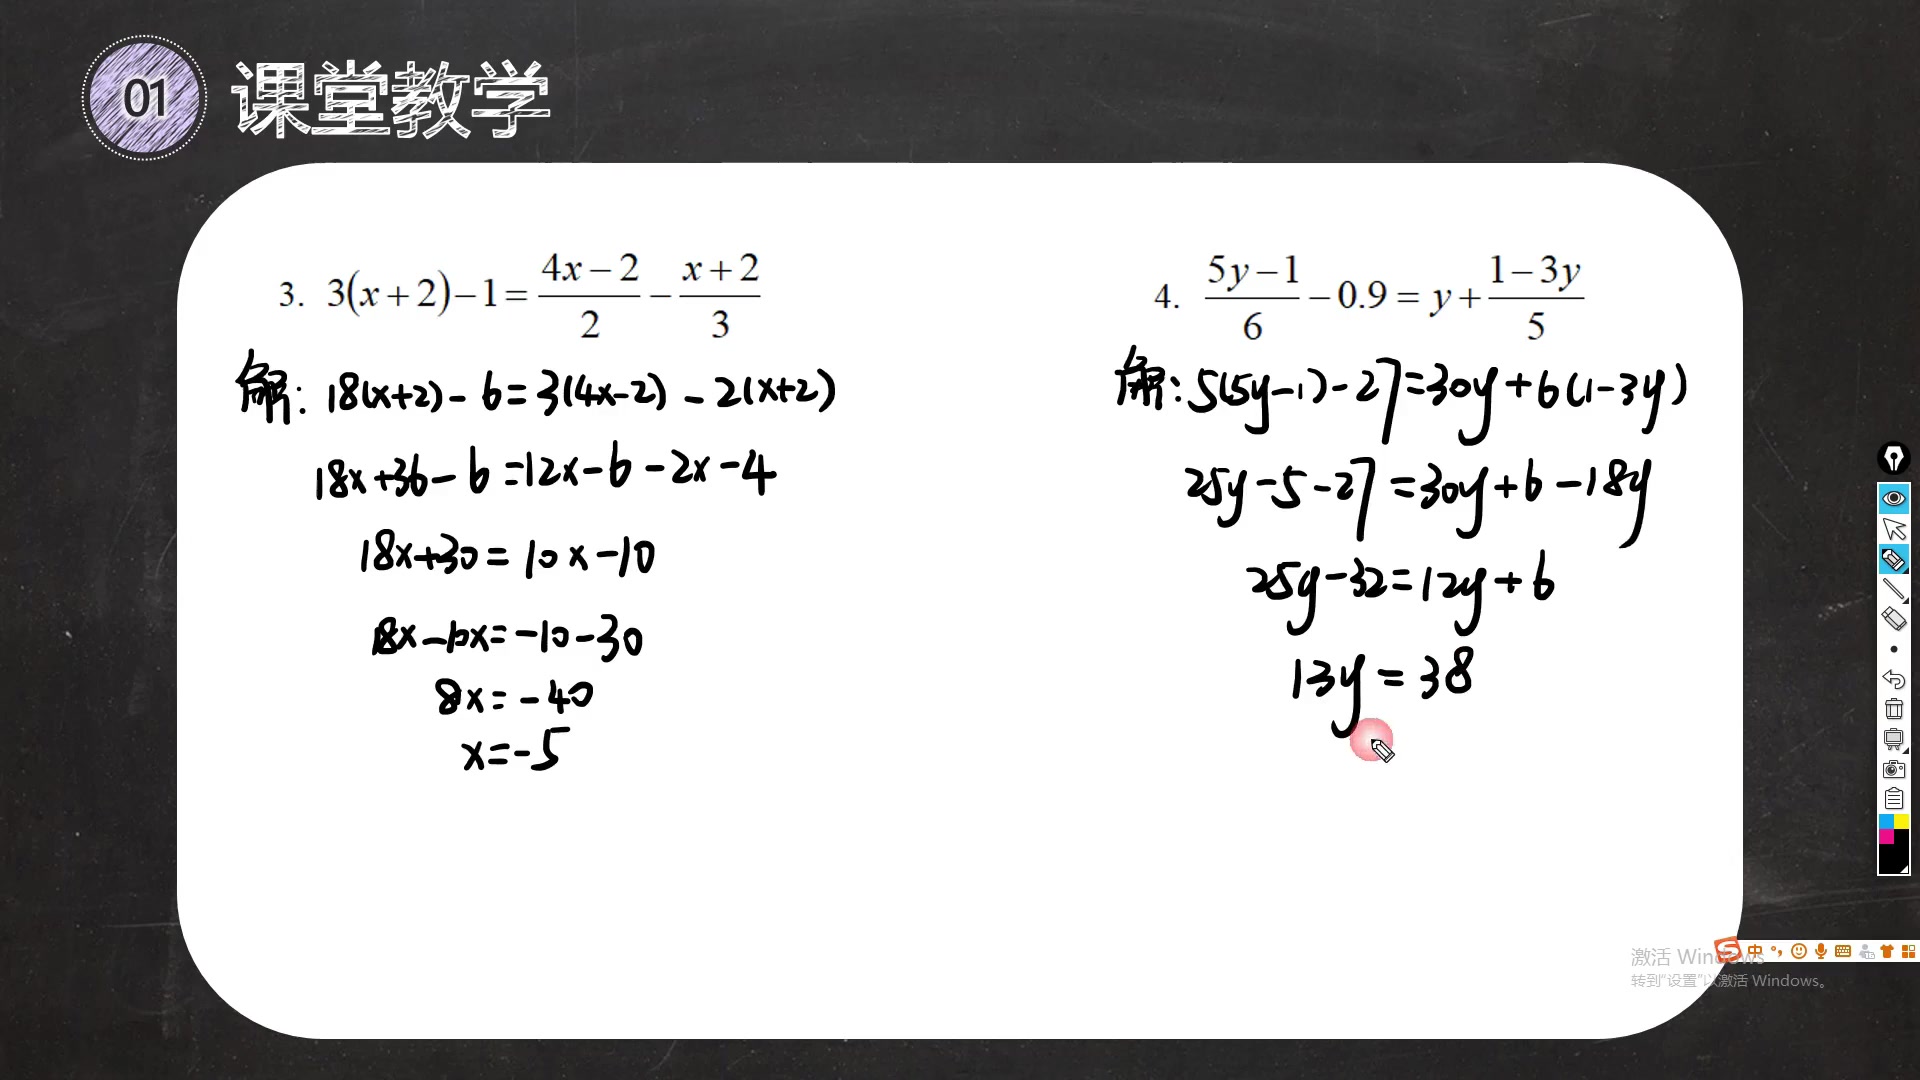 01 课堂教学
3. 3(x+2)−1=\frac{4x−2}{2}−\frac{x+2}{3}
解: 18(x+2)-6=3(4x-2)-2(x+2)
18x+36-6=12x-6-2x-4
18x+30=10x-10
18x-10x=-10-30
8x=-40
x=-5
4. \frac{5y−1}{6}−0.9=y+\frac{1−3y}{5}
解: 5(5y-1)-27=30y+6(1-3y)
25y-5-27=30y+6-18y
25y-32=12y+6
13y=38
中
激活 Windows
转到“设置”以激活 Windows。